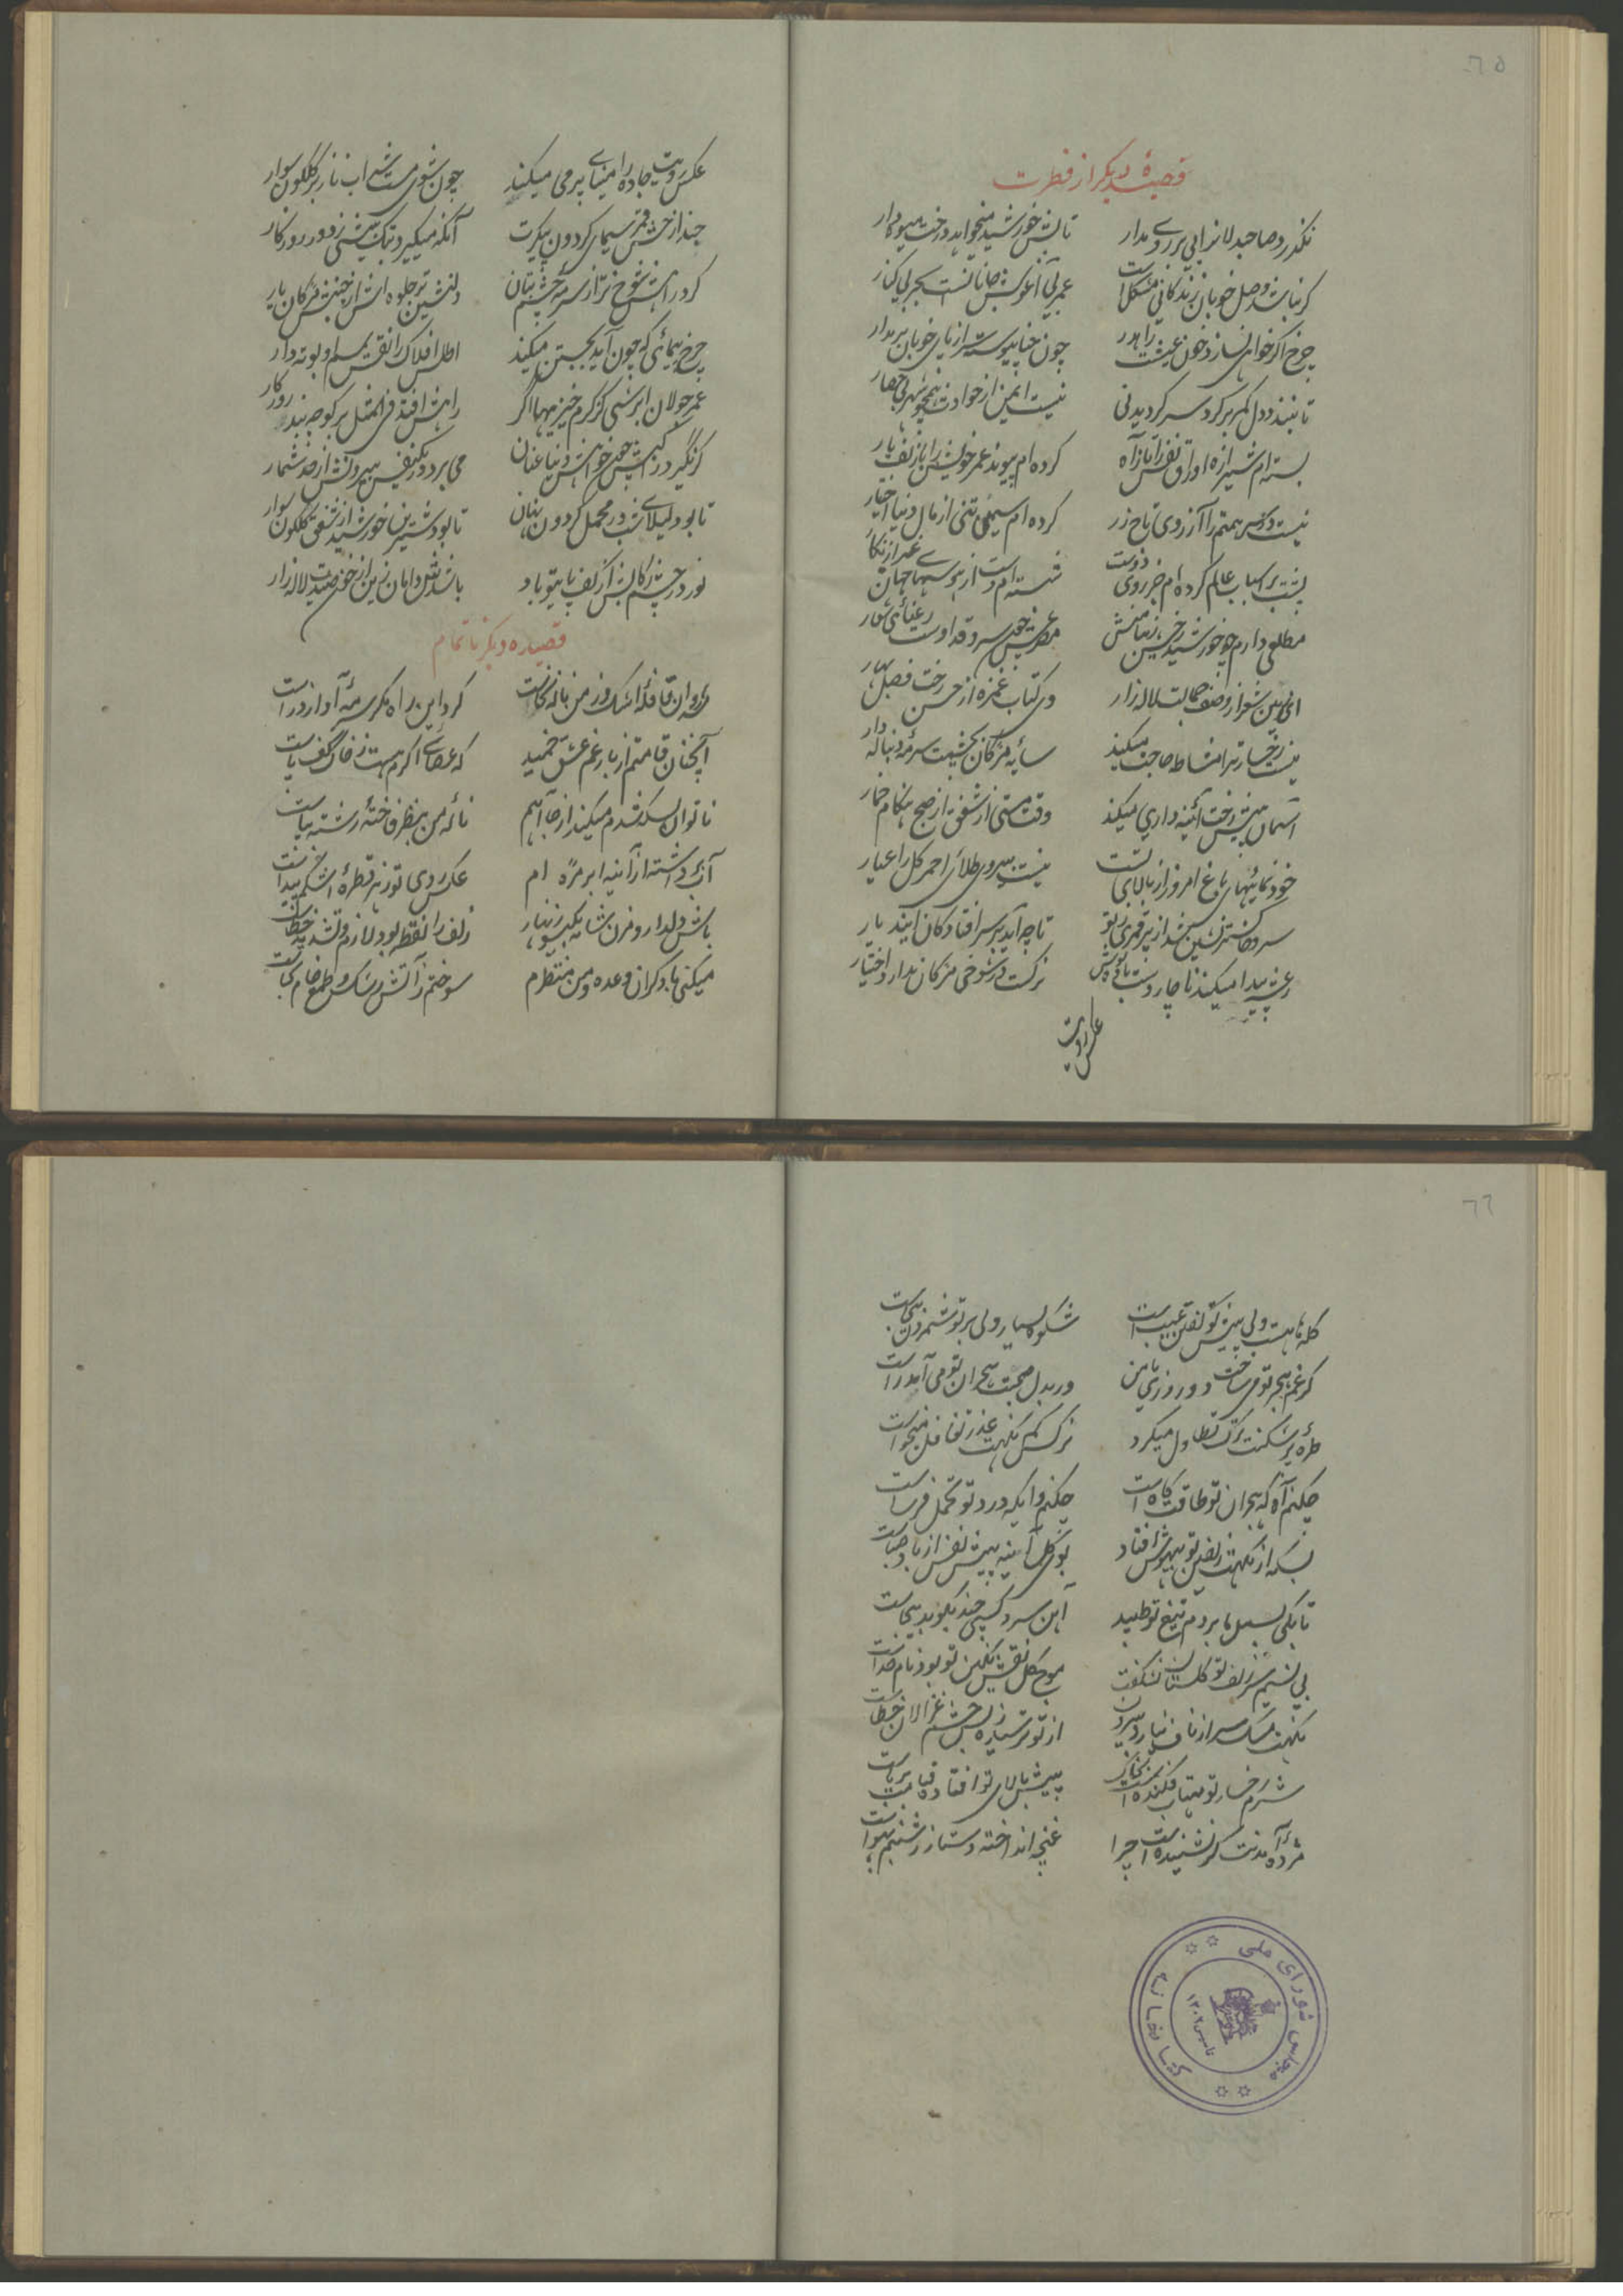 ٦٥
قصیدهٔ دیگر از فطرت
نگذرد صاحبدلانرا بی پریروئی مدار تابش خورشید میخواهد درخت میوه‌دار
گر نباشد وصل خوبان زندگانی مشکل است عمر بی آغوش جانانست بحر بی کنار
چرخ اگر خواهی نسازد خون عیشت را هدر چون حنا پیوسته سر از پای خوبان بر مدار
تا نبندد دل کمر بر گرد سر گردیدنی نیست ایمن از حوادث همچو شهر بی حصار
بسته‌ام شیرازه اوراق نفس را باز آه کرده‌ام پیوند عمر خویش را با زلف یار
نیست در سر همتم را آرزوی تاج زر کرده‌ام سیمین تنی از مال دنیا اختیار
پشت بر اسباب عالم کرده‌ام جز روی دوست شسته‌ام دست از هوسهای جهان غیر از نگار
مطلعی دارم چو خورشید رخش زیبا منش مصرع پیش سرو قد اوست رعنائی شعار
ای بهین شعر از وصف جمالت لاله‌زار وی کتاب غمزه از حسن رخت فصل بهار
نیست رخسار ترا مشاطه حاجت میکند سایهٔ مژگان بچشمت سرمهٔ دنباله‌دار
آسمان پیش رخت آئینه‌داری میکند وقت مستی از شفق از صبح هنگام خمار
خودنمائیهای باغ امروز از بالای تست نیست بی روی طلائی احمر گل را عیار
سرو خاکسترنشین شد از پر قمری تا چه آید بر سر افتادگان ایندیار
رعشه پیدا میکند ناچار دست باده‌نوش نرگست در شوخی مژگان ندارد اختیار
عکس رویت
عکس رویت جاده را مینای پر می میکند چون شوی مست شراب ناز بر گلگون سوار
حبذا رخش قمر سیمای گردون پیکرت آنکه میگیرد بتک پیشی ز دور روزگار
گرد راهش شوخ‌تر از سرمهٔ چشم بتان دلنشین‌تر جلوه‌اش از جنبش مژگان یار
چرخ پیمائی که چون آید بجستن میکند اطلس افلاک را نقش سم او بوته‌دار
عمر جولان ابرشی کز گرم خیزیها اگر راهش افتد فی المثل بر کوچه بند روزگار
گر نگیرد در کفش خواهش دنیا عنان می برد در یکنفس بیرونش از حد شمار
تا بود لیلای شب در محمل گردون نهان تا بود شیرین خورشید از شفق گلگون سوار
نور در چشم رکابش از کف پای تو باد باشد نقل دامان زین از خون صیدت لاله‌زار
قصیده دیگر ناتمام
رهروان قافلهٔ اشک و ز من ناله کجاست گرد این راه مگر سرمهٔ آواز دراست
آنچنان قامتم از بار غم عشق خمید که عصای اگرم هست ز خاک کف پاست
ناتوان بسکه قدم میکند از جا آهم نالهٔ من بنظر فاختهٔ رشته بپاست
آبی برداشته از آینه ابر مژه‌ام عکس روی تو ز هر قطرهٔ اشکم پیداست
باش دلدار و مزن شانه بگیسو زنهار زلف را نقطه بود لازم و تشدید خطاست
میکنی با دگران وعده و من منتظرم سوختم ز آتش رشک و طمع خام بجاست
٦٦
گله‌ها هست ولی پیش تو گفتن عیب است شکوه بسیار ولی بر تو شمردن بیجاست
گر غم هجر تو می‌ساخت دو روزی با من ور بدل صحبت هجران تو می‌آمد راست
طره پر شکنت ترک تطاول میکرد نرگس کم نگهت عذر تغافل میخواست
چکنم آه که هجران تو طاقت کاه است چکنم وای که درد تو تحمل فرساست
بسکه از نکهت زلفین تو بیهوش افتاد بوی گل آینه پیش نفس از باد صباست
تا بکی بسمل ما بر دم تیغ تو طپید آهن سرد کسی چند بکوبد بیجاست
بی نسیم سر زلف تو گلستان نشکفت موج گل نقش نگین تو بود نام خداست
نکهت مشک سر از ناف نیارد بیرون از تو ترسیده ز بس چشم غزالان خطاست
شرم رخسار تو مهتاب فکنده است بخاک پیش بالای تو افتاده قیامت برپاست
مژدهٔ آمدنت گر نشنیده است چرا غنچه انداخته دستار ز شبنم بهواست
کتابخانه مجلس شورای ملی
تاسیس ۱۳۰۲